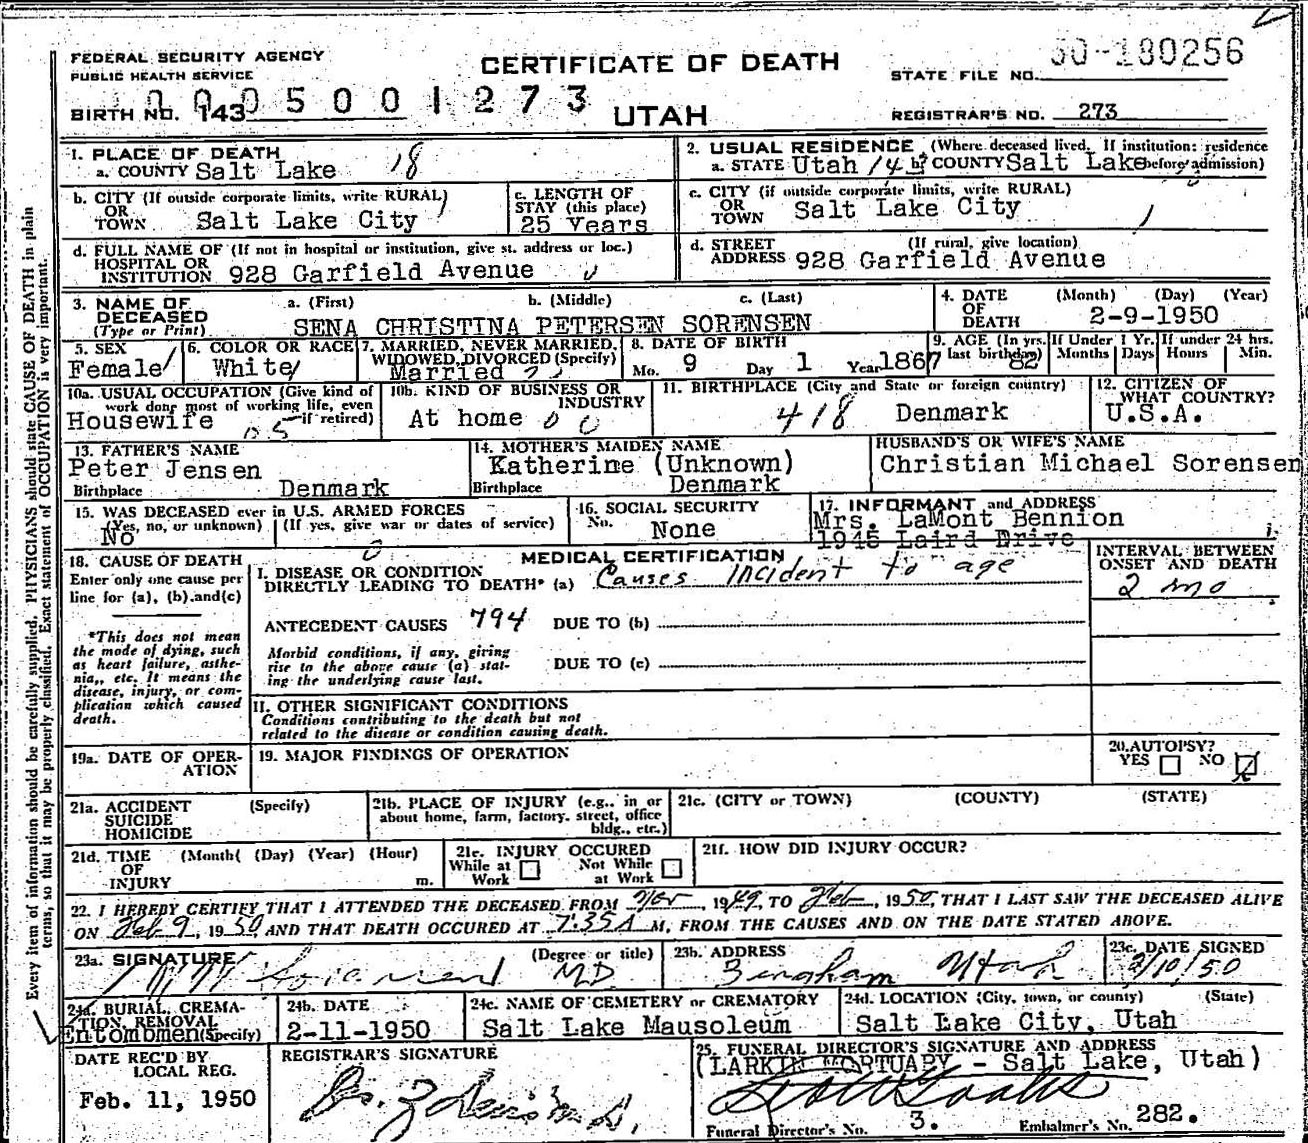 FEDERAL SECURITY AGENCY
PUBLIC HEALTH SERVICE
CERTIFICATE OF DEATH
UTAH
STATE FILE NO. 50-180256
BIRTH NO. 143 0005001273
REGISTRAR'S NO. 273
Every item of information should be carefully supplied. PHYSICIANS should state CAUSE OF DEATH in plain
terms, so that it may be properly classified. Exact statement of OCCUPATION is very important.
1. PLACE OF DEATH
a. COUNTY Salt Lake 18
2. USUAL RESIDENCE (Where deceased lived. If institution: residence
a. STATE Utah 143 b. COUNTY Salt Lake before admission)
b. CITY (If outside corporate limits, write RURAL)
OR
TOWN Salt Lake City
c. LENGTH OF
STAY (this place)
25 Years
c. CITY (if outside corporate limits, write RURAL)
OR
TOWN Salt Lake City
d. FULL NAME OF (If not in hospital or institution, give st. address or loc.)
HOSPITAL OR
INSTITUTION 928 Garfield Avenue
d. STREET (If rural, give location)
ADDRESS 928 Garfield Avenue
3. NAME OF a. (First) b. (Middle) c. (Last)
DECEASED
(Type or Print) SENA CHRISTINA PETERSEN SORENSEN
4. DATE (Month) (Day) (Year)
OF
DEATH 2-9-1950
5. SEX
Female
6. COLOR OR RACE
White
7. MARRIED, NEVER MARRIED,
WIDOWED, DIVORCED (Specify)
Married
8. DATE OF BIRTH
Mo. 9 Day 1 Year 1867
9. AGE (In yrs. last birthday) 82
If Under 1 Yr. Months Days
If under 24 hrs. Hours Min.
10a. USUAL OCCUPATION (Give kind of
work done most of working life, even
Housewife if retired)
10b. KIND OF BUSINESS OR
INDUSTRY
At home
11. BIRTHPLACE (City and State or foreign country)
418 Denmark
12. CITIZEN OF
WHAT COUNTRY?
U.S.A.
13. FATHER'S NAME
Peter Jensen
Birthplace Denmark
14. MOTHER'S MAIDEN NAME
Katherine (Unknown)
Birthplace Denmark
HUSBAND'S OR WIFE'S NAME
Christian Michael Sorensen
15. WAS DECEASED ever in U.S. ARMED FORCES
(Yes, no, or unknown) (If yes, give war or dates of service)
No
16. SOCIAL SECURITY
No. None
17. INFORMANT and ADDRESS
Mrs. LaMont Bennion
1945 Laird Drive
18. CAUSE OF DEATH
Enter only one cause per
line for (a), (b) and (c)
*This does not mean
the mode of dying, such
as heart failure, asthe-
nia, etc. It means the
disease, injury, or com-
plication which caused
death.
MEDICAL CERTIFICATION
I. DISEASE OR CONDITION
DIRECTLY LEADING TO DEATH* (a) Causes Incident to age
ANTECEDENT CAUSES 794 DUE TO (b)
Morbid conditions, if any, giving
rise to the above cause (a) stat-
ing the underlying cause last.
DUE TO (c)
II. OTHER SIGNIFICANT CONDITIONS
Conditions contributing to the death but not
related to the disease or condition causing death.
INTERVAL BETWEEN
ONSET AND DEATH
2 mo
19a. DATE OF OPER-
ATION
19. MAJOR FINDINGS OF OPERATION
20. AUTOPSY?
YES NO
21a. ACCIDENT (Specify)
SUICIDE
HOMICIDE
21b. PLACE OF INJURY (e.g., in or
about home, farm, factory, street, office
bldg., etc.)
21c. (CITY or TOWN) (COUNTY) (STATE)
21d. TIME (Month( (Day) (Year) (Hour)
OF
INJURY m.
21e. INJURY OCCURED
While at Work Not While at Work
21f. HOW DID INJURY OCCUR?
22. I HEREBY CERTIFY THAT I ATTENDED THE DECEASED FROM Nov, 1949, TO Feb, 1950, THAT I LAST SAW THE DECEASED ALIVE
ON Feb 9, 1950, AND THAT DEATH OCCURED AT 7:35 A M, FROM THE CAUSES AND ON THE DATE STATED ABOVE.
23a. SIGNATURE (Degree or title)
Sorensen M.D.
23b. ADDRESS
Bingham Utah
23c. DATE SIGNED
2/10/50
24a. BURIAL, CREMA-
TION, REMOVAL
Entombmen (Specify)
24b. DATE
2-11-1950
24c. NAME OF CEMETERY or CREMATORY
Salt Lake Mausoleum
24d. LOCATION (City, town, or county) (State)
Salt Lake City, Utah
DATE REC'D BY
LOCAL REG.
Feb. 11, 1950
REGISTRAR'S SIGNATURE
25. FUNERAL DIRECTOR'S SIGNATURE AND ADDRESS
(LARKIN MORTUARY - Salt Lake, Utah)
Funeral Director's No. 3. Embalmer's No. 282.